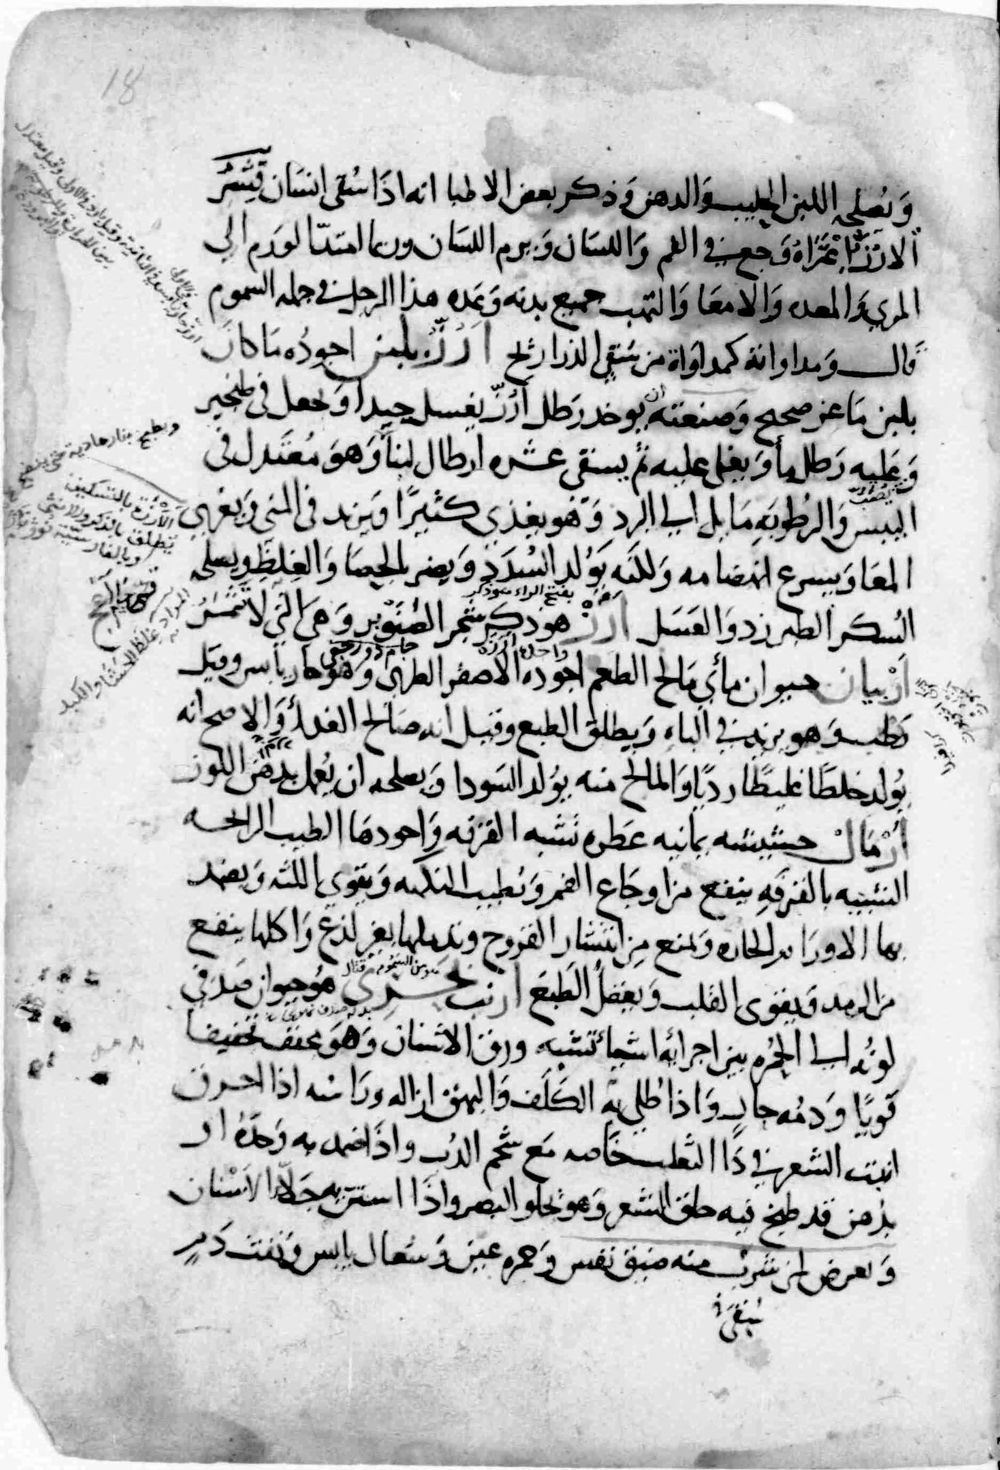 18
ويصلحه اللبن الحليب والدهن وذكر بعض الاطبا انه اذا سقى انسان قشر
الارز اعتراه وجع في الفم واللسان ويرم اللسان وربما امتد الورم الى
المري والمعده والامعا والتهب جميع بدنه وعده هذا الرجل في جمله السموم
قال ومداواته كمداواة من سقى الذراريح ارز بلبن اجوده ما كان
بلبن ماعز صحيح وصنعته ان يوخد رطل ارز يغسل جيدا ويجعل في طنجير
وعليه رطل ما ويغلى عليه ثم يسقى عشره ارطال لبنا وهو معتدل في
اليبس والرطوبه مايل الى البرد وهو يغذي كثيرا ويزيد في المني ويغري
المعا ويسرع انهضامه ولكنه يولد السدد ويضر بالحصا والغلظ ويصلحه
السكر الطبرزد والعسل ارز هو ذكر شجر الصنوبر وهي التي لا تثمر
اربيان حيوان مائي مالح الطعم اجوده الاصفر الطري وهو حار يابس وقيل
رطب وهو يزيد في الباه ويطلق الطبع وقيل انه صالح الغدا والاصح انه
يولد خلطا غليظا رديا والمالح منه يولد السودا ويصلحه ان يعمل بدهن اللوز
ارمال حشيشه يمانيه عطره تشبه القرفه واجودها الطيب الرائحه
الشبيه بالقرفه ينفع من اوجاع الفم ويطيب النكهه ويقوي اللثه ويضمد
بها الاورام الحاره ويمنع من انتشار القروح ويدملها بغير لذع واكلها ينفع
من الرمد ويقوي القلب ويعقل الطبع ارنب بحري هو حيوان صدفي
لونه الى الحمره بين اجزائه اشيا تشبه ورق الاشنان وهو يجفف تجفيفا
قويا ودمه حار واذا طلي به الكلف والبهق ازاله وراسه اذا احرق
انبت الشعر في دا الثعلب خاصه مع شحم الدب واذا ضمد به وحده او
بدهن قد طبخ فيه حلق الشعر وهو يجلو البصر واذا استن به جلا الاسنان
ويعرض لمن شرب منه ضيق نفس وحمره عين وسعال يابس ونفث دم
يسقى
ويطبخ بنار هادية حتى ينضج